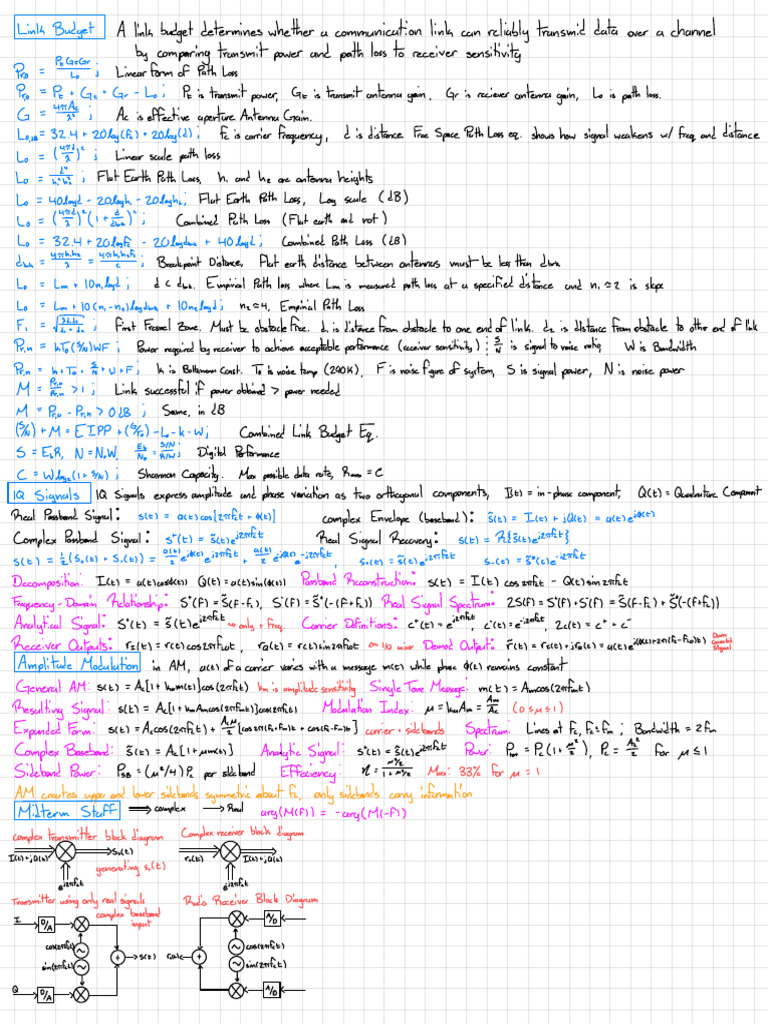 Link Budget A link budget determines whether a communication link can reliably transmid data over a channel
by comparing transmit power and path loss to receiver sensitivity
Pr₀ = PₜGₜGr/L₀ ; Linear form of Path Loss
Pr₀ = Pₜ + Gₜ + Gr - L₀ ; Pₜ is transmit power, Gₜ is transmit antenna gain, Gr is reciever antenna gain, L₀ is path loss.
G = 4πAₑ/λ² ; Ae is effective aperture Antenna Gain.
= 32.4 + 20log(fc) + 20log(d) ; fc is carrier frequency, d is distance Free Space Path Loss eq. shows how signal weakens w/ freq and distance
L₀ = (4πd/λ)² ; Linear scale path loss
L₀ = d⁴/h₁²h₂² ; Flat Earth Path Loss, h₁ and h₂ are antenna heights
L₀ = 40logd - 20logh₁ - 20logh₂ ; Flat Earth Path Loss, Log scale (dB)
L₀ = (4πd/λ)²(1 + d/dbk)² ; Combined Path Loss (Flat earth and not)
L₀ = 32.4 + 20logfc - 20logdbk + 40logd ; Combined Path Loss (dB)
dbk = = ; Breakpoint Distance, Flat earth distance between antennas must be less than dbk
L₀ = Lm + 10n₁logd ; d < dbk, Empirical Path loss where Lm is measured path loss at a specified distance and n₁ ≈ 2 is slope
L₀ = Lm + 10(n₁-n₂)logdbk + 10n₂logd ; n₂ ≈ 4, Empirical Path Loss
F₁ = ; First Fresnel Zone. Must be obstacle free. d₁ is distance from obstacle to one end of link. d₂ is distance from obstacle to other end of link
Pr,n = kT₀(S/N)WF ; Power required by receiver to achieve acceptable performance (receiver sensitivity) ; S/N is signal to noise ratio, W is Bandwidth
Pr,n = k + T₀ + S/N + W + F ; k is Boltzmann Const. T₀ is noise temp (290K), F is noise figure of system, S is signal power, N is noise power
M = > 1 ; Link successful if power obtained > power needed
M = Pr,₀ - Pr,n > 0dB ; Same, in dB
(S/N) + M = EIPP + - L₀ - k - W ; Combined Link Budget Eq.
S = EbR, N = N₀W, Eb/N₀ = (S/N)/(R/W) ; Digital Performance
C = Wlog₂(1 + S/N) ; Shannon Capacity. Max possible data rate, Rmax = C
IQ Signals IQ Signals express amplitude and phase variation as two orthogonal components, I(t) = in-phase component, Q(t) = Quadrature Component
Real Passband Signal: s(t) = a(t)cos[2πfct + ϕ(t)] complex Envelope (baseband): s̃(t) = I(t) + jQ(t) = a(t)e^jϕ(t)
Complex Passband Signal: s⁺(t) = s̃(t)e^j2πfct Real Signal Recovery: s(t) = R{s̃(t)e^j2πfct}
s(t) = ½(S₊(t) + S₋(t)) = a(t)/2 e^jϕ(t) e^j2πfct + a(t)/2 e^-jϕ(t) e^-j2πfct, s₊(t) = s̃(t)e^j2πfct s₋(t) = s̃*(t)e^-j2πfct
Decomposition: I(t) = a(t)cosϕ(t) Q(t) = a(t)sin(ϕ(t)) Passband Reconstruction: s(t) = I(t)cos2πfct - Q(t)sin2πfct
Frequency-Domain Relationship: S⁺(f) = S̃(f-fc), S⁻(f) = S̃*(-(f+fc)) Real Signal Spectrum: 2S(f) = S⁺(f) + S⁻(f) = S̃(f-fc) + S̃*(-(f+fc))
Analytical Signal: S⁺(t) = s̃(t)e^j2πfct only + freq. Carrier Definitions: c⁺(t) = e^j2πfct, c⁻(t) = e^-j2πfct, 2c(t) = c⁺ + c⁻
Receiver Outputs: rI(t) = r(t)cos2πfct, rQ(t) = r(t)sin2πfct Demod Output: r̃(t) = rI(t) + jrQ(t) = Down Converted Signal
Amplitude Modulation in AM, a(t) of a carrier varies with a message m(t) while phase ϕ(t) remains constant
General AM: s(t) = Ac[1 + kam(t)]cos(2πfct) ka is amplitude sensitivity Single Tone Message: m(t) = Amcos(2πfmt)
Resulting Signal: s(t) = Ac[1 + kaAmcos(2πfmt)]cos(2πfct) Modulation Index: μ = kaAm = Am/Ac (0 ≤ μ ≤ 1)
Expanded Form: s(t) = Accos(2πfct) + Acμ/2 [cos2π(fc+fm)t + cos(fc-fm)t] carrier + sidebands Spectrum: Lines at fc, fc±fm ; Bandwidth = 2fm
Complex Baseband: s̃(t) = Ac[1 + μm(t)] Analytic Signal: s⁺(t) = s̃(t)e^j2πfct Power: Ptot = Pc(1 + μ²/2), Pc = Ac²/2 for μ ≤ 1
Sideband Power: PSB = (μ²/4)Pc per sideband Efficiency: η = (μ²/2)/(1 + μ²/2) Max: 33% for μ = 1
AM creates upper and lower sidebands symmetric about fc, only sidebands carry information
Midterm Stuff ⟹ complex → Real arg(M(f)) = -arg(M(-f))
complex transmitter block diagram Complex receiver block diagram
I(t)+jQ(t) S₊(t) r₊(t) I(t)+jQ(t)
generating s₊(t)
e^j2πfct e^-j2πfct
Transmitter using only real signals Radio Receiver Block Diagram
complex baseband
input
I D/A A/D
cos(2πfct) cos(2πfct)
+ s(t) r(t) +
sin(2πfct) sin(2πfct)
Q D/A A/D